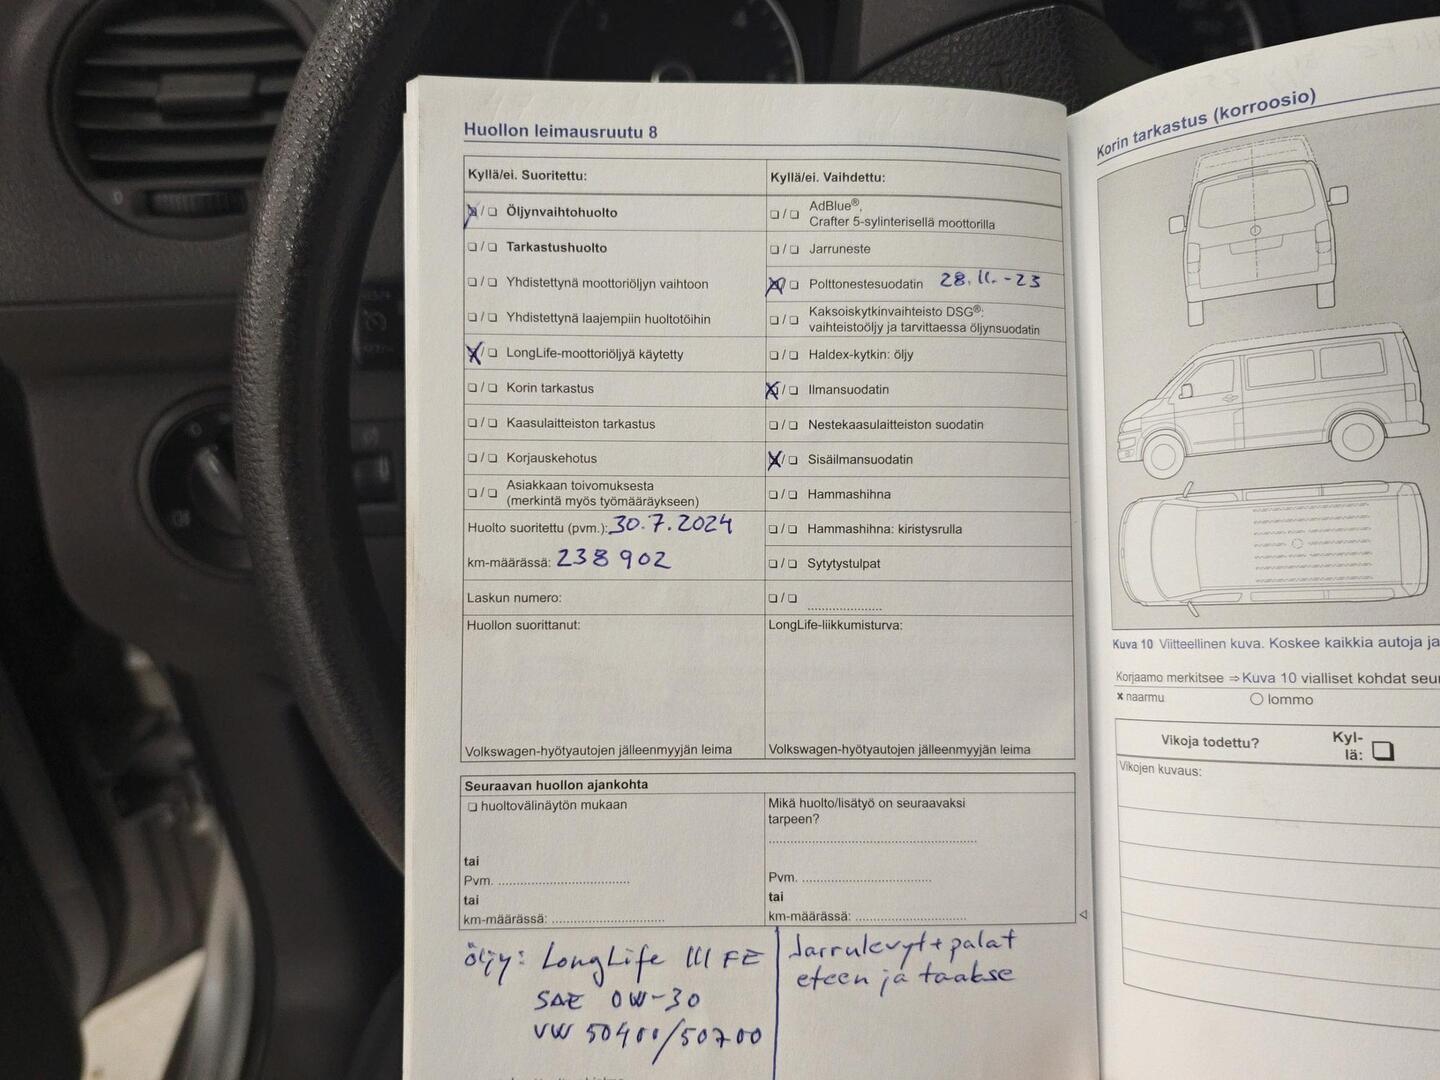 Huollon leimausruutu 8
Kyllä/ei. Suoritettu:
☒/❏ Öljynvaihtohuolto
❏/❏ Tarkastushuolto
❏/❏ Yhdistettynä moottoriöljyn vaihtoon
❏/❏ Yhdistettynä laajempiin huoltotöihin
☒/❏ LongLife-moottoriöljyä käytetty
❏/❏ Korin tarkastus
❏/❏ Kaasulaitteiston tarkastus
❏/❏ Korjauskehotus
❏/❏ Asiakkaan toivomuksesta
(merkintä myös työmääräykseen)
Huolto suoritettu (pvm.): 30.7.2024
km-määrässä: 238 902
Laskun numero:
Huollon suorittanut:
Volkswagen-hyötyautojen jälleenmyyjän leima
Kyllä/ei. Vaihdettu:
❏/❏ AdBlue®,
Crafter 5-sylinterisellä moottorilla
❏/❏ Jarruneste
☒/❏ Polttonestesuodatin 28.11.-23
❏/❏ Kaksoiskytkinvaihteisto DSG®:
vaihteistoöljy ja tarvittaessa öljynsuodatin
❏/❏ Haldex-kytkin: öljy
☒/❏ Ilmansuodatin
❏/❏ Nestekaasulaitteiston suodatin
☒/❏ Sisäilmansuodatin
❏/❏ Hammashihna
❏/❏ Hammashihna: kiristysrulla
❏/❏ Sytytystulpat
❏/❏ ....................
LongLife-liikkumisturva:
Volkswagen-hyötyautojen jälleenmyyjän leima
Seuraavan huollon ajankohta
❏ huoltovälinäytön mukaan
tai
Pvm. ....................
tai
km-määrässä: ....................
Mikä huolto/lisätyö on seuraavaksi
tarpeen?
....................
Pvm. ....................
tai
km-määrässä: ....................
öljy: LongLife III FE
SAE 0W-30
VW 50400/50700
Jarrulevyt + palat
eteen ja taakse
Korin tarkastus (korroosio)
Kuva 10 Viitteellinen kuva. Koskee kaikkia autoja ja
Korjaamo merkitsee ⇒ Kuva 10 vialliset kohdat
x naarmu ○ lommo
Vikoja todettu? Kyl-
lä: ❏
Vikojen kuvaus: